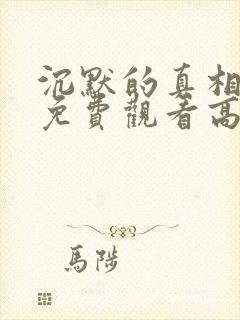 沉默的真相
免費觀看高
馬陟